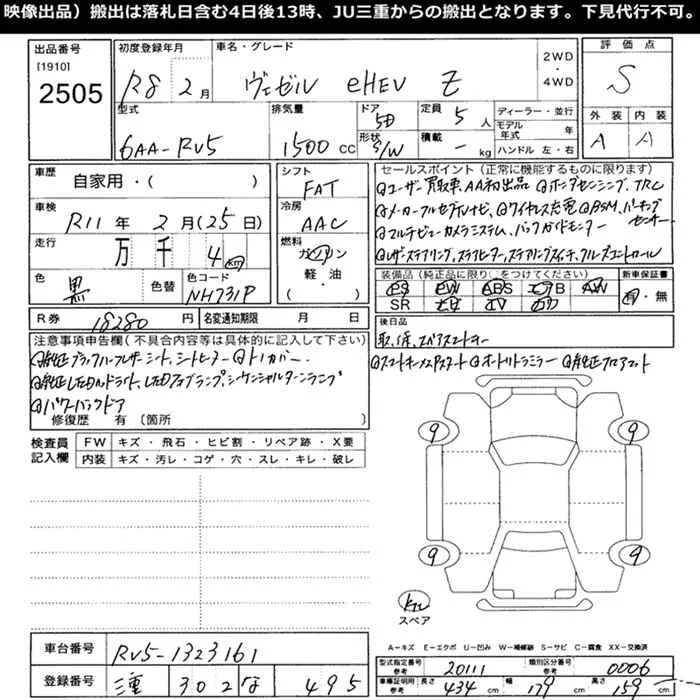 映像出品）搬出は落札日含む4日後13時、JU三重からの搬出となります。下見代行不可。
出品番号
[1910]
2505
初度登録年月
R8 2月
車名・グレード
ヴェゼル eHEV Z
2WD
・
4WD
評価点
S
型式
6AA-RV5
排気量
1500 cc
ドア
5D
形状
S/W
定員
5人
積載
- kg
ディーラー・並行
モデル年式 年
ハンドル 左・右
外装 内装
A A
車歴
自家用・( )
車検
R11年 2月(25日)
走行
万 千 4 km
色
黒
色替
色コード
NH731P
シフト
FAT
冷房
AAC
燃料
ガソリン
軽・油
( )
セールスポイント（正常に機能するものに限ります）
◎ユーザー買取車、AA初出品 ◎ホンダセンシング、TRC
◎メーカーフルセグナビ、◎ワイヤレス充電 ◎BSM、パーキングセンサー
◎マルチビューカメラシステム、バックガイドモニター
◎レザーステアリング、ステアヒーター、ステアリングスイッチ、クルーズコントロール
装備品（純正品に限り○をつけてください）
PS PW ABS エアB AW
SR ナビ TV カワ
新車保証書
有・無
R券
18280円
名変通知期限 月 日
後日品
取、保、スペアスマートキー
注意事項申告欄（不具合内容等は具体的に記入して下さい）
◎純正ブラックハーフレザーシート、シートヒーター ◎トノカバー、
◎純正LEDヘッドライト、LEDフォグランプ、シーケンシャルターンランプ
◎パワーバックドア
修復歴 有 〔箇所 〕
◎スマートキー×スマート ◎オートリトラミラー ◎純正フロアマット
検査員
記入欄
FW キズ・飛石・ヒビ割・リペア跡・X要
内装 キズ・汚レ・コゲ・穴・スレ・キレ・破レ
9 9
9 9
スペア
A－キズ E－エクボ U－凹み W－補修跡 S－サビ C－腐食 XX－交換済
車台番号
RV5-1323161
登録番号
三重 302 な 495
型式指定番号
参考
20111
類別区分番号
参考
0006
車庫証明用
参考
長さ 434 cm 幅 179 cm 高さ 159 cm